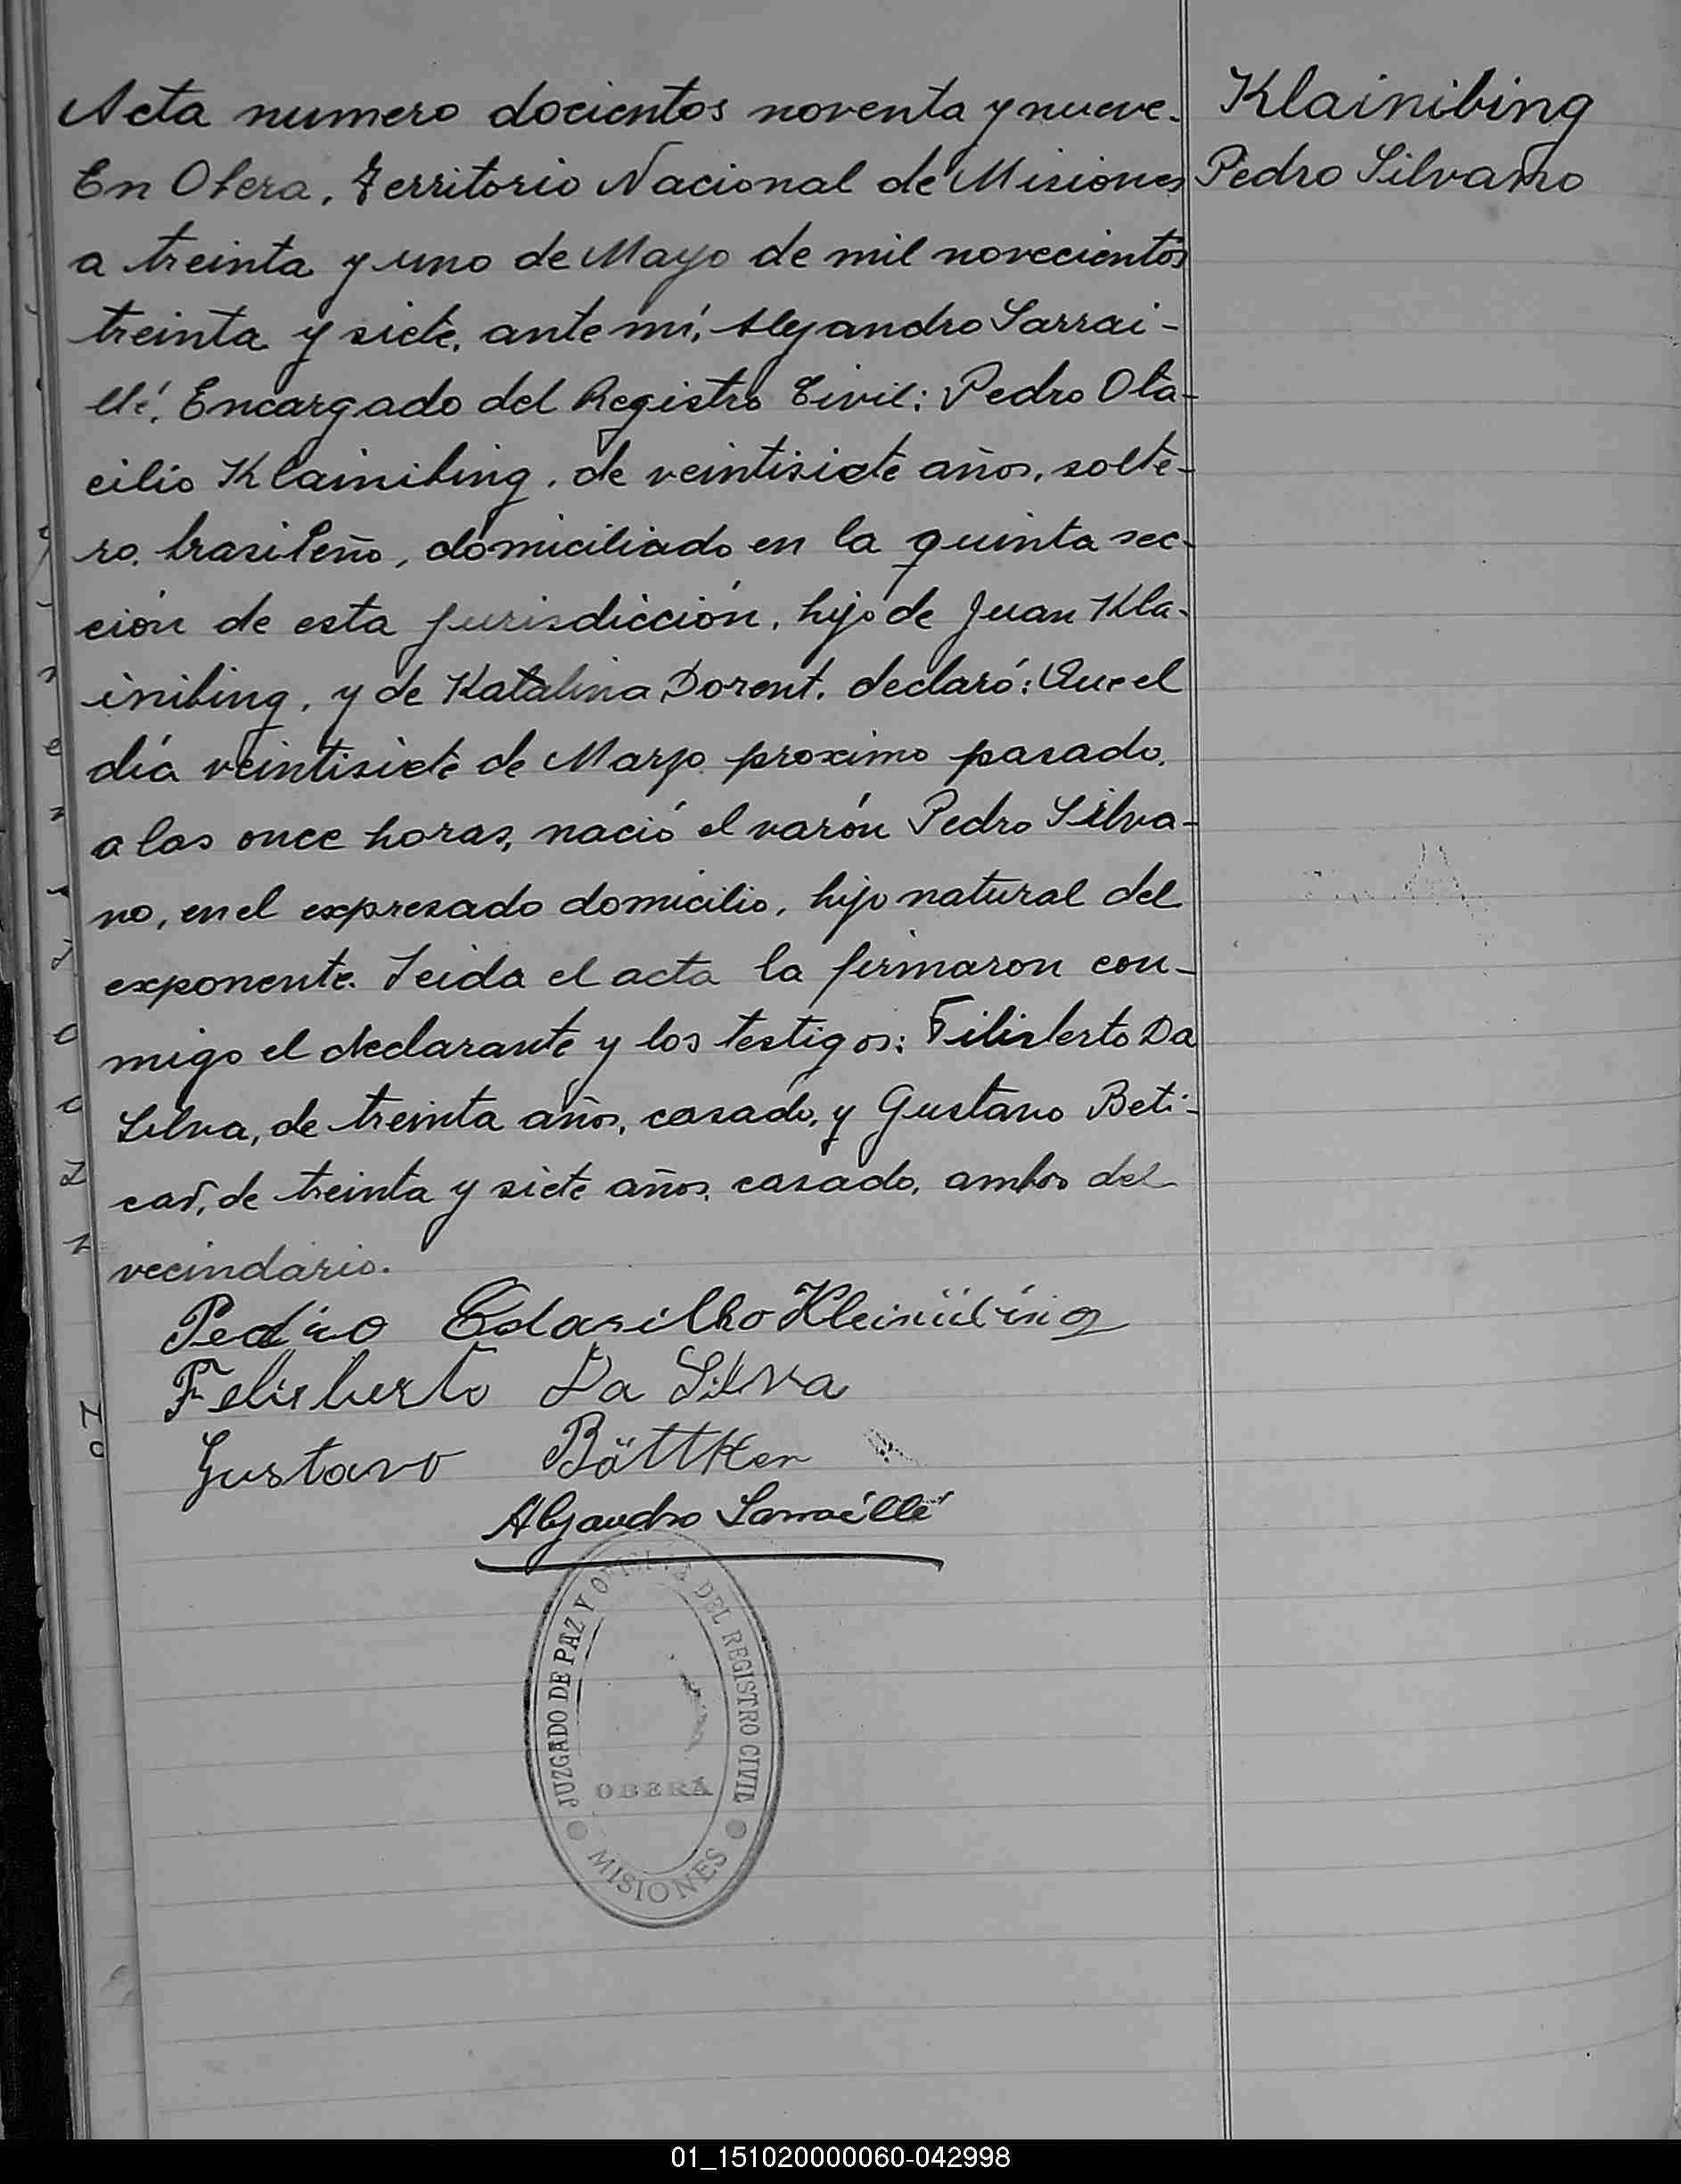 Acta numero docientos noventa y nueve.
En Obera, Territorio Nacional de Misiones
a treinta y uno de Mayo de mil novecientos
treinta y siete, ante mí, Alejandro Sarrai-
llé, Encargado del Registro Civil: Pedro Ota-
cilio Klainibing, de veintisiete años, solte-
ro, brasileño, domiciliado en la quinta sec-
ción de esta jurisdicción, hijo de Juan Kla-
inibing, y de Katalina Dorent, declaró: Que el
día veintisiete de Marzo proximo pasado,
a las once horas, nació el varón Pedro Silva-
no, en el expresado domicilio, hijo natural del
exponente. Leida el acta la firmaron con-
migo el declarante y los testigos: Filisberto Da
Silva, de treinta años, casado, y Gustavo Beti-
car, de treinta y siete años, casado, ambos del
vecindario.
Pedro Kleinübing
Felisberto Da Silva
Gustavo Böttker
Alejandro Sarraillé
Klainibing
Pedro Silvano
JUZGADO DE PAZ Y OFICINA DEL REGISTRO CIVIL
OBERÁ
MISIONES
01_151020000060-042998